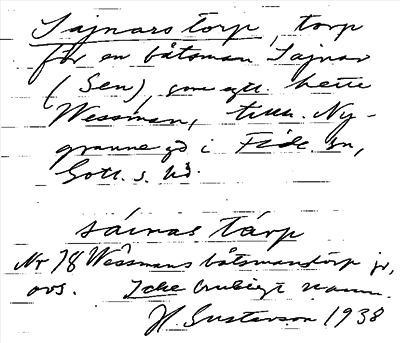 Sajnars torp, torp
för en båtsman Sajnar
(Sen), som egtl. hette
Wessman, till. Ny-
granne gd i Fide sn,
Gotl. s. hd.
sáinas tárp
Nr 78 Wessmans båtsmanstorp jr,
ovs. Icke brukligt namn.
H. Gustavson 1938